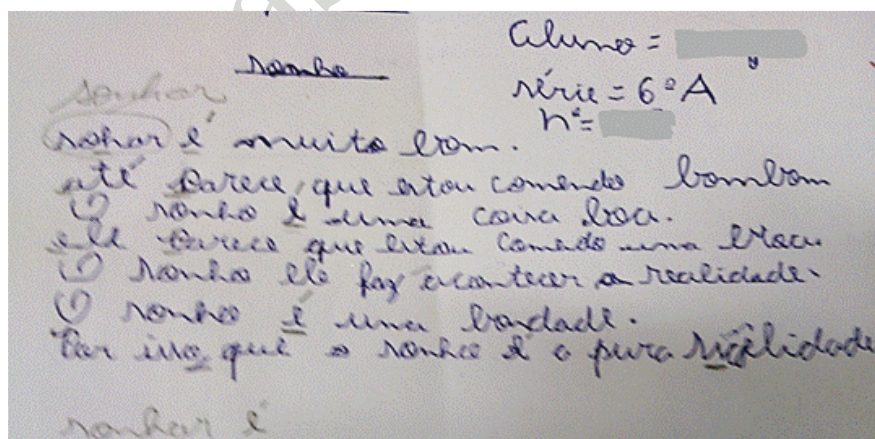 Aluno =
sonho
série = 6º A
nº =
sonhar
sohar é muito bom.
até parece, que estou comendo bombom
O sonho é uma coisa boa.
ele parece que estou comedo uma
O sonho ele faz acontecer a realidade.
O sonho é uma bondade.
Por isso que o sonho é o pura
sonhar é